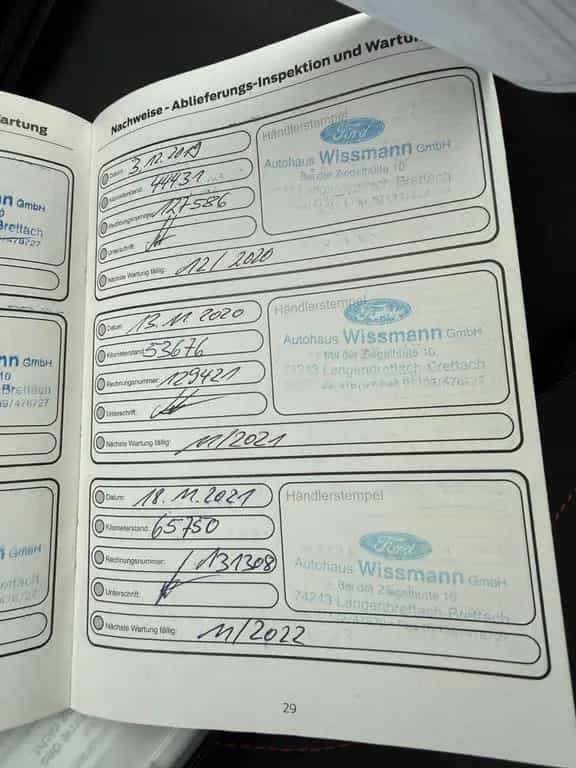 artung
Nachweise - Ablieferungs-Inspektion und Wartu
nn GmbH
10
Brettach
/476727
nn GmbH
10
Brettach
/476727
GmbH
ettach
Datum: 3.12.2019
Kilometerstand: 44431
Rechnungsnummer: 127586
Unterschrift:
Nächste Wartung fällig: 12/2020
Händlerstempel
Ford
Autohaus Wissmann GmbH
Bei der Ziegelhütte 10
Langenbrettach Brettach
Datum: 13.11.2020
Kilometerstand: 53676
Rechnungsnummer: 129421
Unterschrift:
Nächste Wartung fällig: 11/2021
Händlerstempel
Ford
Autohaus Wissmann GmbH
Bei der Ziegelhütte 10
74243 Langenbrettach Brettach
/476727
Datum: 18.11.2021
Kilometerstand: 65750
Rechnungsnummer: 131308
Unterschrift:
Nächste Wartung fällig: 11/2022
Händlerstempel
Ford
Autohaus Wissmann GmbH
Bei der Ziegelhütte 10
74243 Langenbrettach Brettach
29